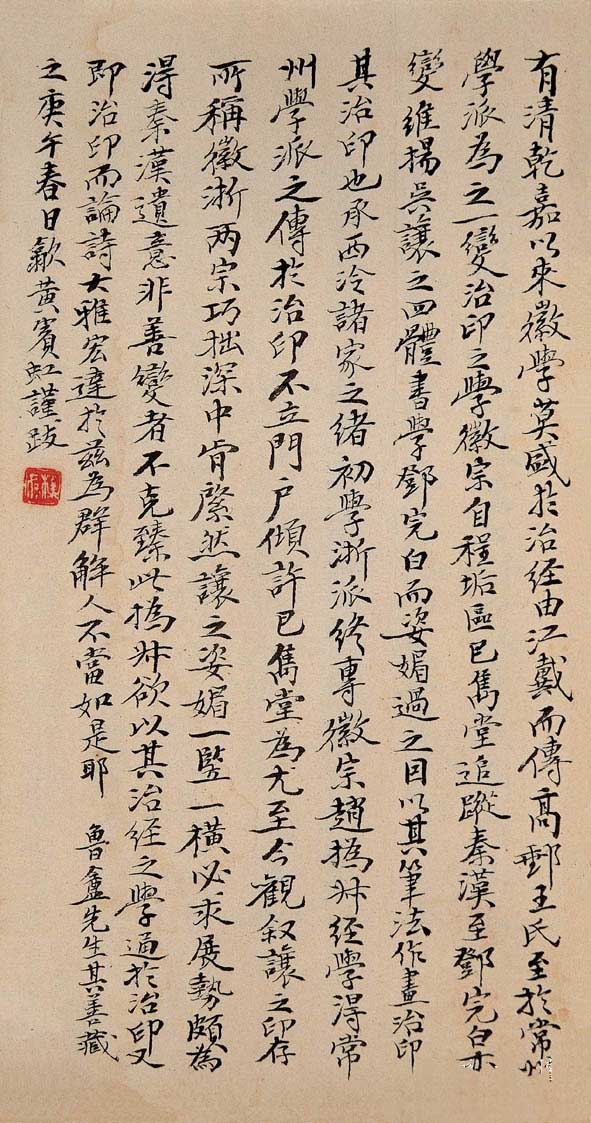 有清乾嘉以來徽學莫盛於治經由江戴而傳高郵王氏至於常州
學派為之一變治印之學徽宗自程垢區巴雋堂追蹤秦漢至鄧完白亦
變維揚吳讓之四體書學鄧完白而姿媚過之因以其筆法作畫治印
其治印也承西泠諸家之緒初學浙派終專徽宗趙撝叔經學得常
州學派之傳於治印不立門戶傾許巴雋堂為尤至今觀叙讓之印存
所稱徽浙两宗巧拙深中肯綮然讓之姿媚一豎一橫必求展勢頗為
得秦漢遺意非善變者不克臻此撝叔欲以其治經之學通於治印又
即治印而論詩大雅宏達於茲為群解人不當如是耶 魯盦先生其善藏
之庚午春日歙黃賓虹謹跋